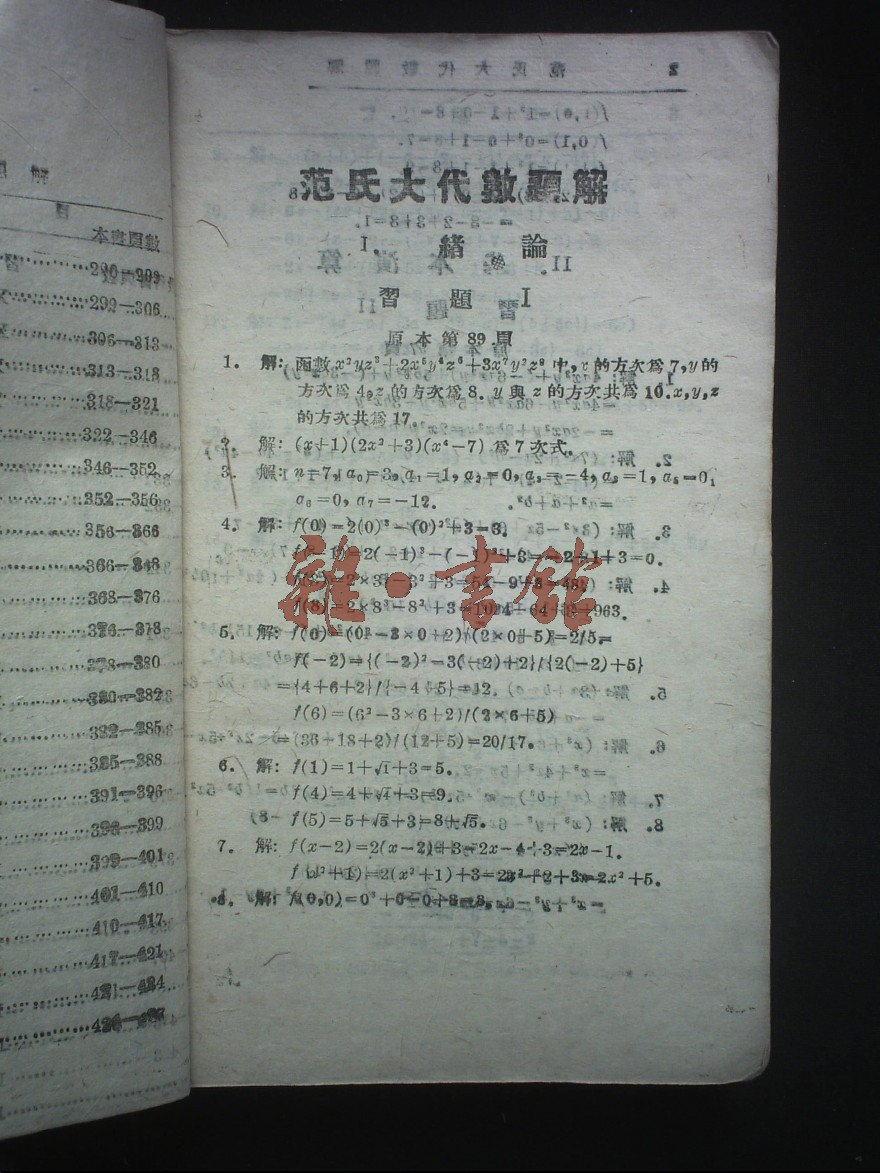 解
目
本書頁數
290—299
299—306
306—313
313—318
318—321
322—346
346—352
352—356
356—366
366—368
368—376
376—378
378—380
380—382
382—385
385—388
391—396
396—399
399—401
401—410
410—417
417—421
421—424
范氏大代數題解
I. 緒論
習題 I
原本第89頁
1. 解: 函數 x²yz³+2x⁵y⁴z⁶+3x⁷y²z⁸ 中, x 的方次爲 7, y 的
方次爲 4, z 的方次爲 8. y 與 z 的方次共爲 10. x, y, z
的方次共爲 17.
2. 解: (x+1)(2x²+3)(x⁴-7) 爲 7 次式.
3. 解: n=7, a₀=3, a₁=1, a₂=0, a₃=-4, a₄=1, a₅=0,
a₆=0, a₇=-12.
4. 解: f(0)=2(0)³-(0)²+3=3.
f(-1)=2(-1)³-(-1)²+3=-2-1+3=0.
f(3)=2×3³-3²+3=54-9+3=48.
f(8)=2×8³-8²+3=1024-64+3=963.
5. 解: f(0)=(0-3×0+2)/(2×0+5)=2/5.
f(-2)={(-2)²-3(-2)+2}/{2(-2)+5}
={4+6+2}/{-4+5}=12.
f(6)=(6²-3×6+2)/(2×6+5)
=(36-18+2)/(12+5)=20/17.
6. 解: f(1)=1+√1+3=5.
f(4)=4+√4+3=9.
f(5)=5+√5+3=8+√5.
7. 解: f(x-2)=2(x-2)+3=2x-4+3=2x-1.
f(x²+1)=2(x²+1)+3=2x²+2+3=2x²+5.
8. 解: f(0,0)=0³+0-0+8=8.
雜·書館